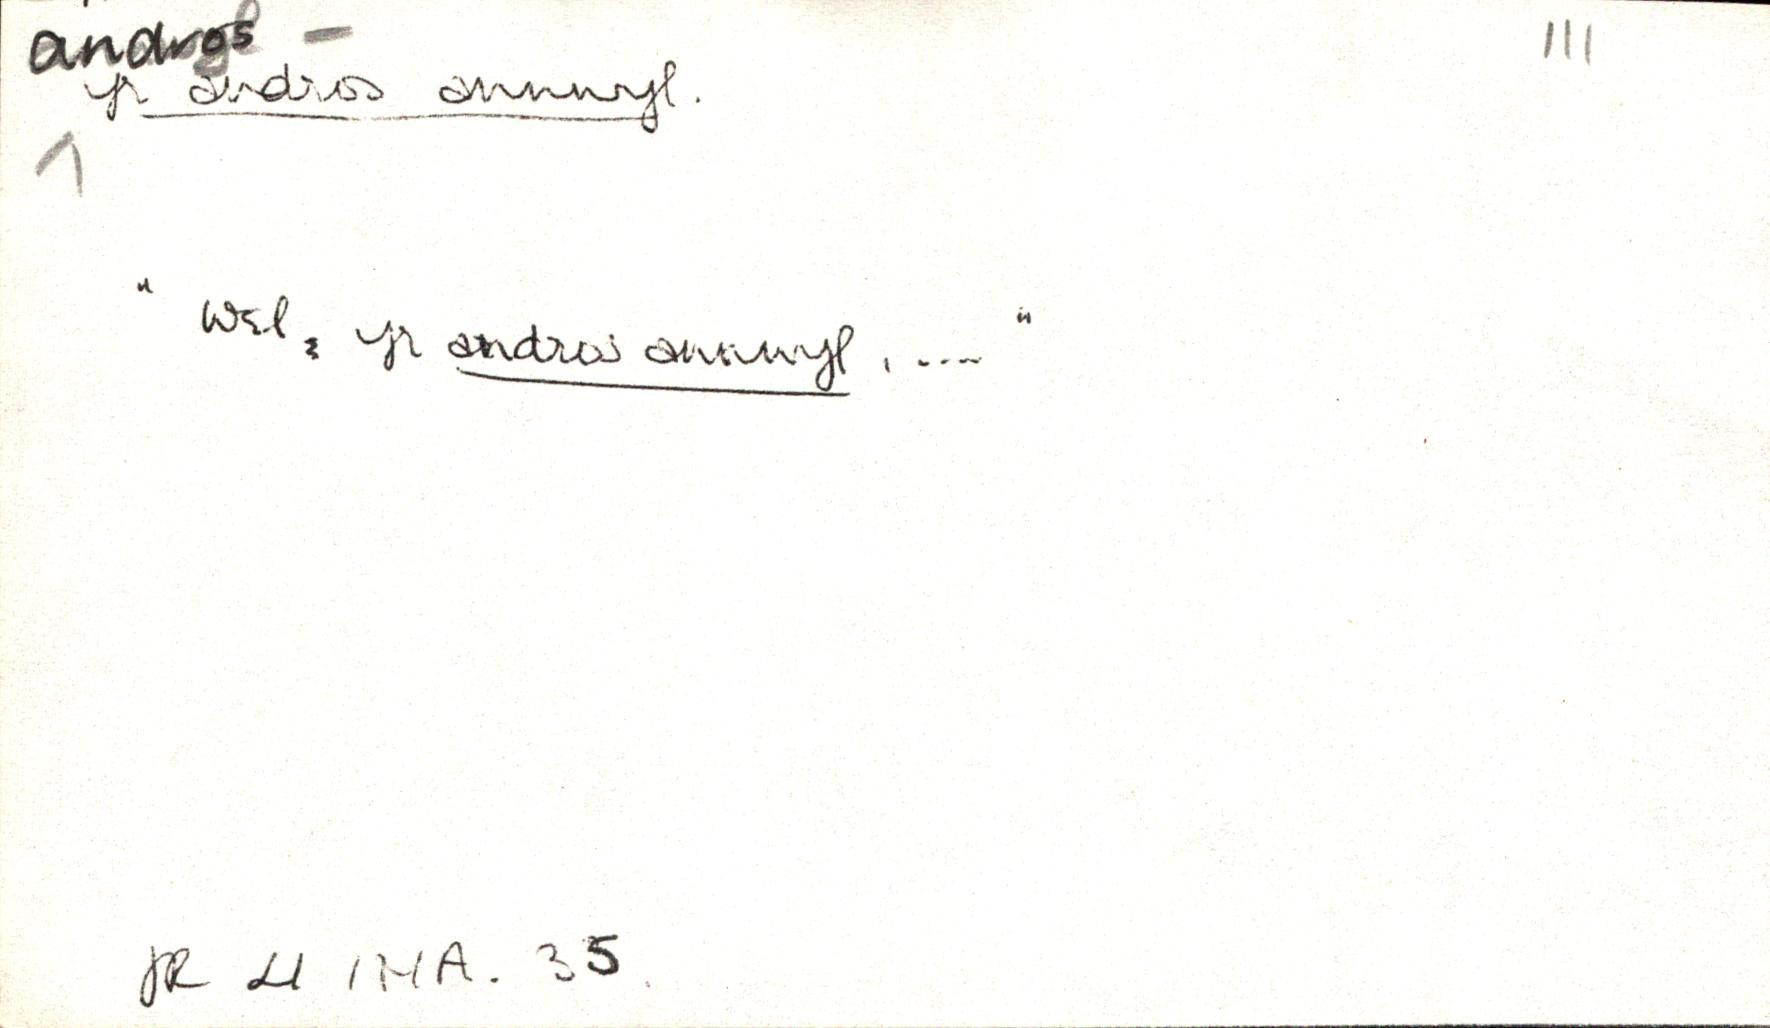 andros –
111
yr andros annwyl.
" Wel, yr andros annwyl, .... "
JR Ll 1HA. 35.